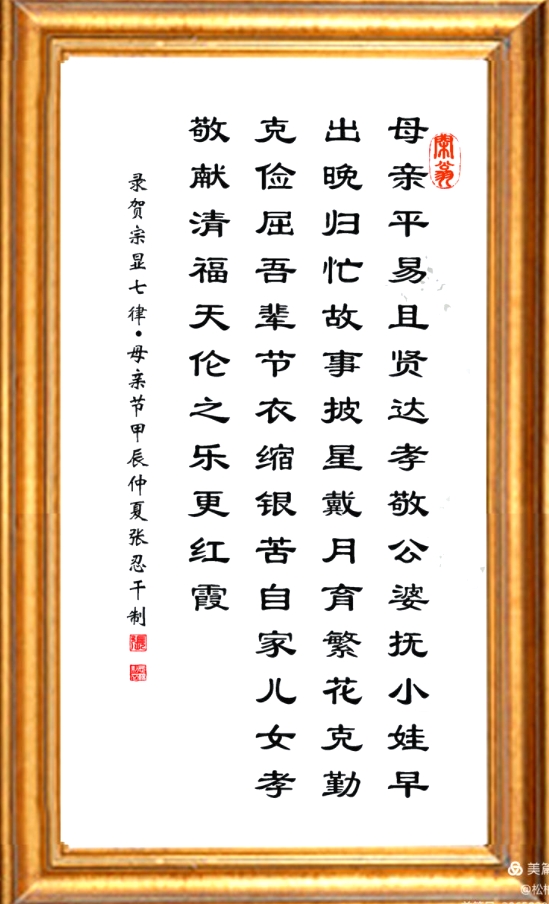 母亲平易且贤达孝敬公婆抚小娃早
出晚归忙故事披星戴月育繁花克勤
克俭屈吾辈节衣缩银苦自家儿女孝
敬献清福天伦之乐更红霞
录贺宗显七律·母亲节甲辰仲夏张忍干制
美篇